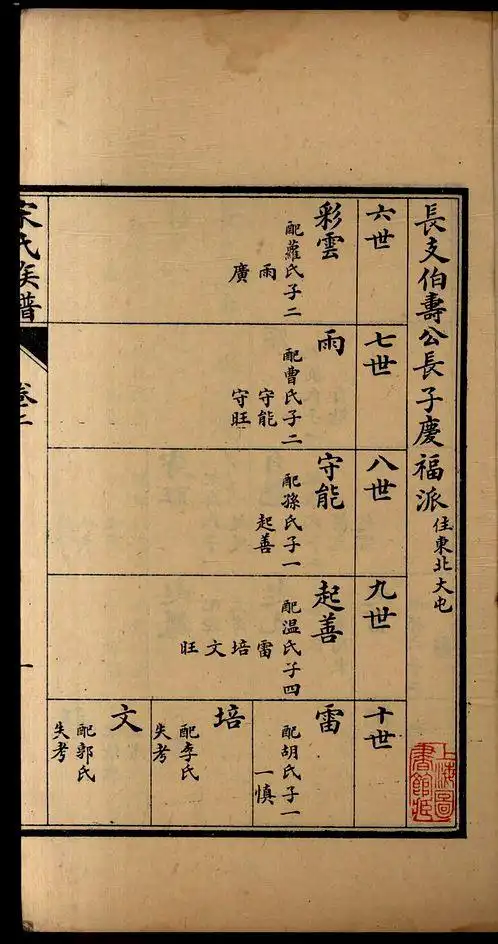 長支伯壽公長子慶福派 住東北大屯
六世
彩雲
配蘿氏子二
雨
廣
七世
雨
配曹氏子二
守能
守旺
八世
守能
配孫氏子一
起善
九世
起善
配温氏子四
雷
培
文
旺
十世
雷
配胡氏子一
一慎
培
配李氏
失考
文
配郭氏
失考
宋氏族譜
卷二
一
上海圖
書館藏